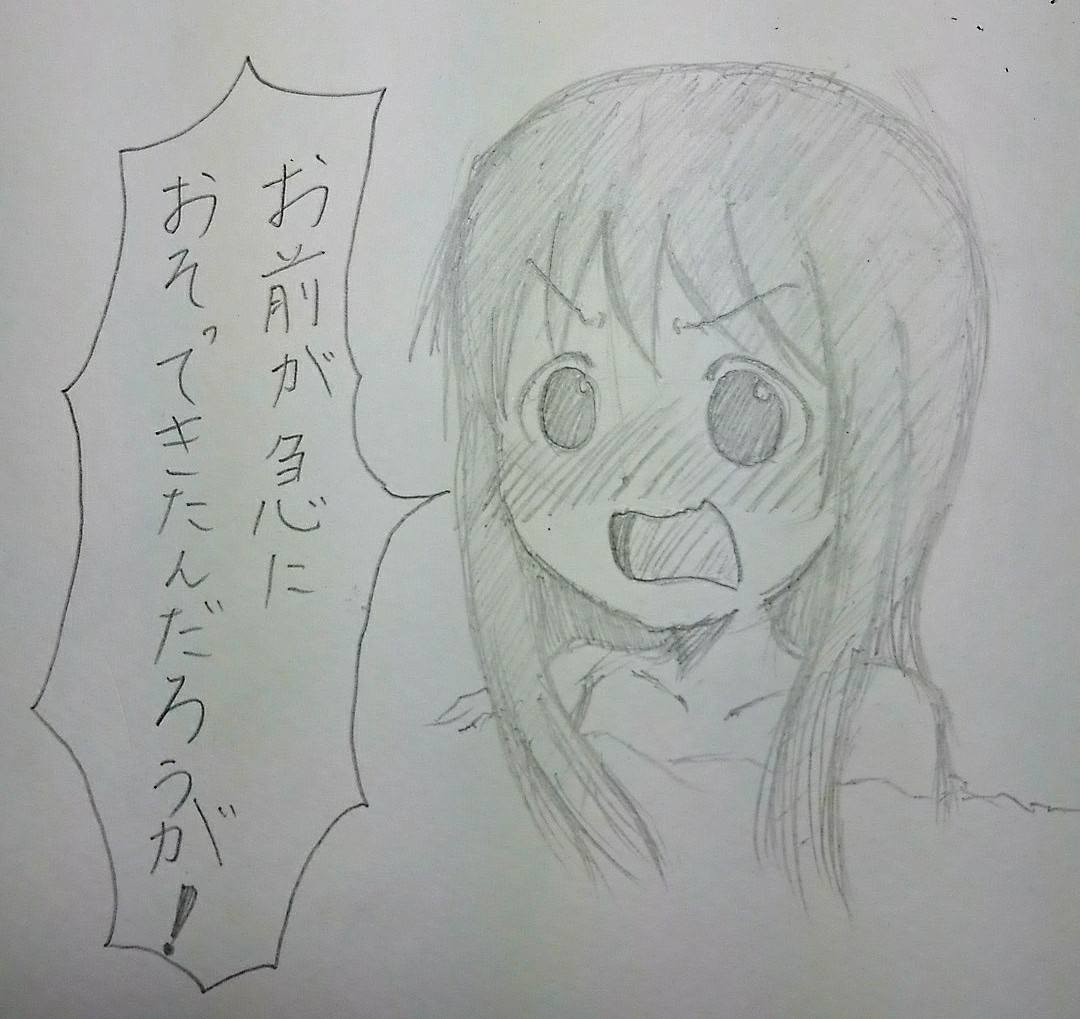 お前が急に
おそってきたんだろうが!